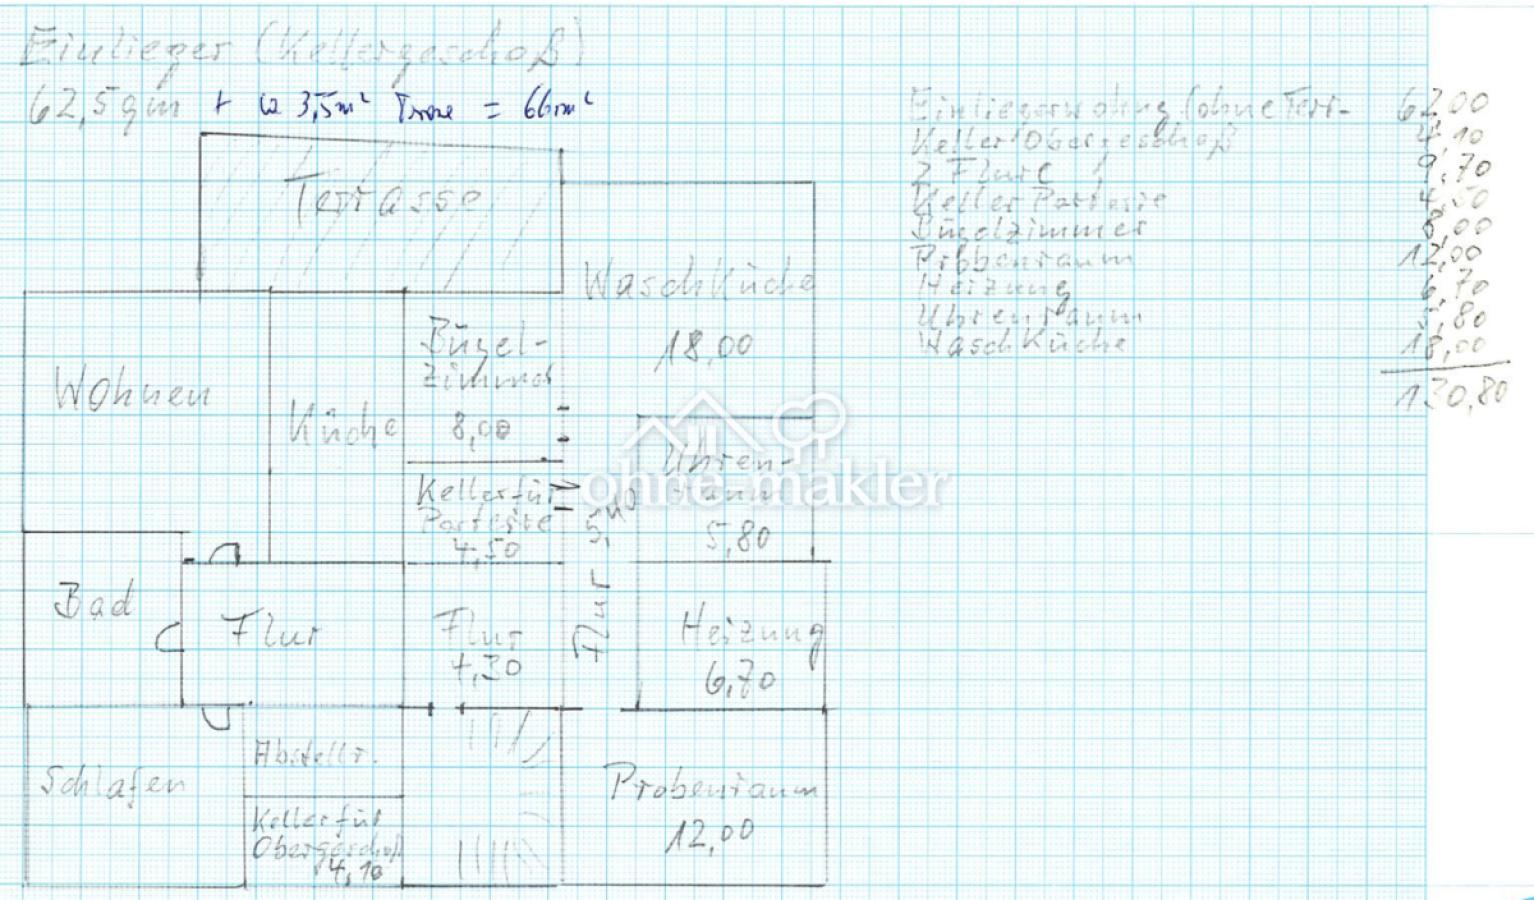 Einlieger (Kellergeschoß)
62,5qm + ca 3,5m² Terrasse = 66m²
Einliegerwohng (ohne Terr- 62,00
Keller Obergeschoß 4,10
2 Flure 9,70
Keller Parterre 4,50
Bügelzimmer 8,00
Probenraum 12,00
Heizung 6,70
Uhrenraum 5,80
Waschküche 18,00
130,80
Terrasse
Waschküche
18,00
Bügel-
zimmer
8,00
Wohnen
Küche
Uhren-
raum
5,80
ohne-makler
Keller für
Parterre
4,50
Flur 5,40
Bad
Flur
Flur
4,30
Heizung
6,70
Abstellr.
Schlafen
Probenraum
12,00
Keller für
Obergeschoß
4,10